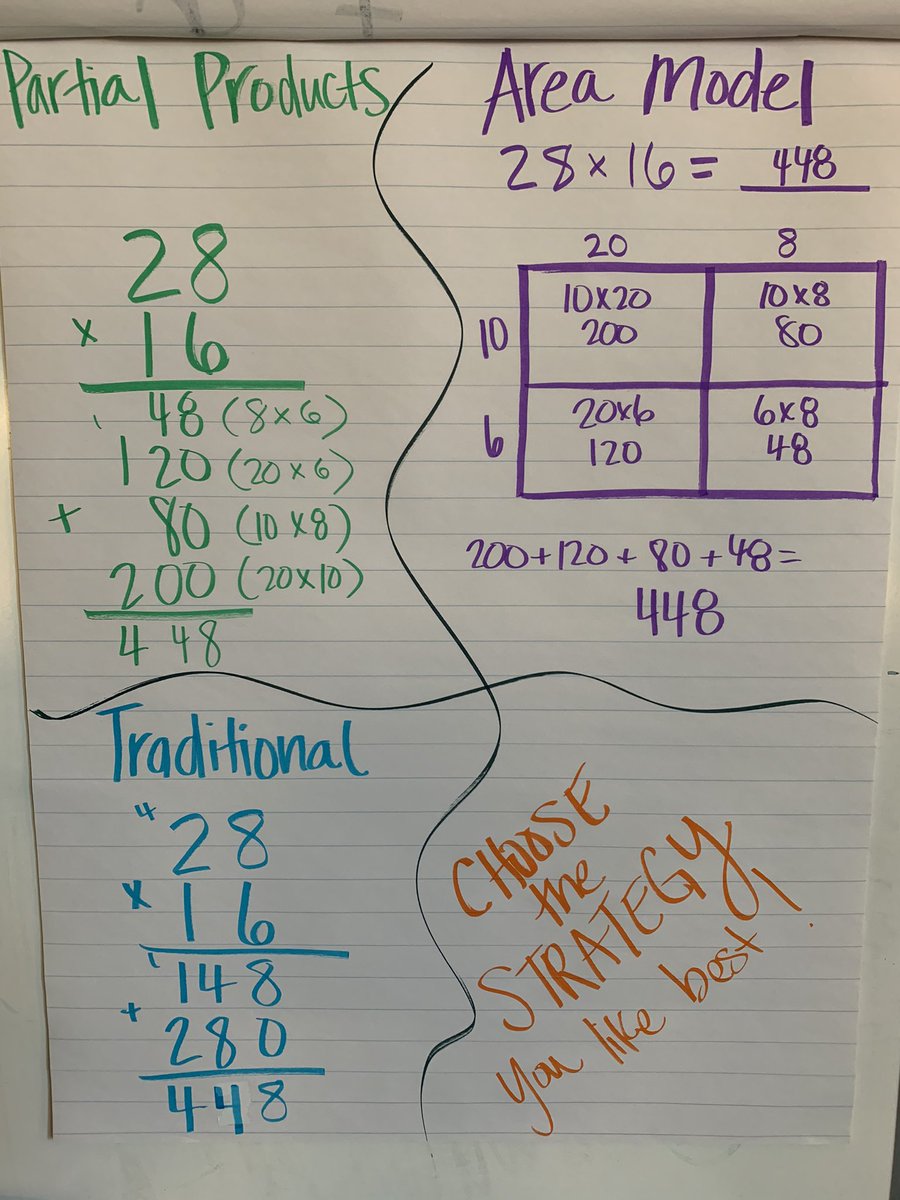 Partial Products
28
x 16
1
48 (8x6)
120 (20x6)
+ 80 (10x8)
200 (20x10)
448
Area Model
28 x 16 = 448
20 8
10x20 10x8
10 200 80
20x6 6x8
6 120 48
200+120+80+48=
448
Traditional
4
28
x 16
1
148
+ 280
448
CHOOSE
the
STRATEGY
you like best!